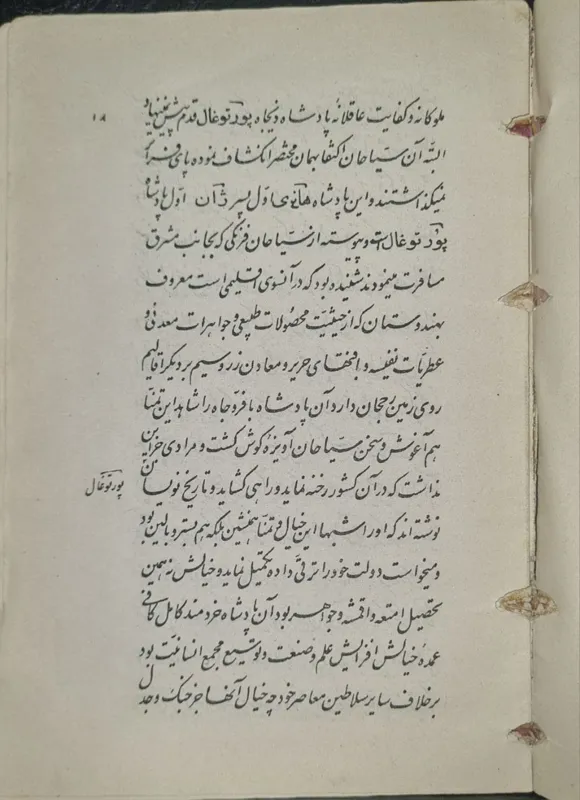 ۱۸
ملوکانه و کفایت عاقلانهٔ پادشاه ذیجاه پورتوغال قدم پیش
البته آن سیاحان اکتفا بهمان مختصر انکشاف نموده پای فرا
نمیگذاشتند و این پادشاه هانری اول پسر ژان اول پادشاه
پورتوغال است و پیوسته از سیاحان فرنگی که بجانب مشرق
مسافرت مینمودند شنیده بود که در آنسوی اقلیمی است معروف
بهندوستان که از حیثیت محصولات طبیعی و جواهرات معدنی و
عطریات نفیسه و بافتهای حریر و معادن زر و سیم بر دیگر اقالیم
روی زمین رجحان دارد آن پادشاه با فر و جاه را شاهد این تمنا
هم آغوش و سخن سیاحان آویزهٔ گوش گشت و مرادی جز این
نداشت که در آن کشور رخنه نماید و راهی گشاید و تاریخ نویسان
پورتوغال
نوشته اند که او را شبها این خیال و تمنا همنشین بلکه هم بستر و بالین بود
و میخواست دولت خود را ترقی داده تکمیل نماید و خیالش نه همین
تحصیل امتعه و اقمشه و جواهر بود آن پادشاه خردمند کامل کافی
عمدهٔ خیالش افزایش علم و صنعت و توسیع مجمع انسانیت بود
برخلاف سایر سلاطین معاصر خود چه خیال آنها جز جنگ و جدل